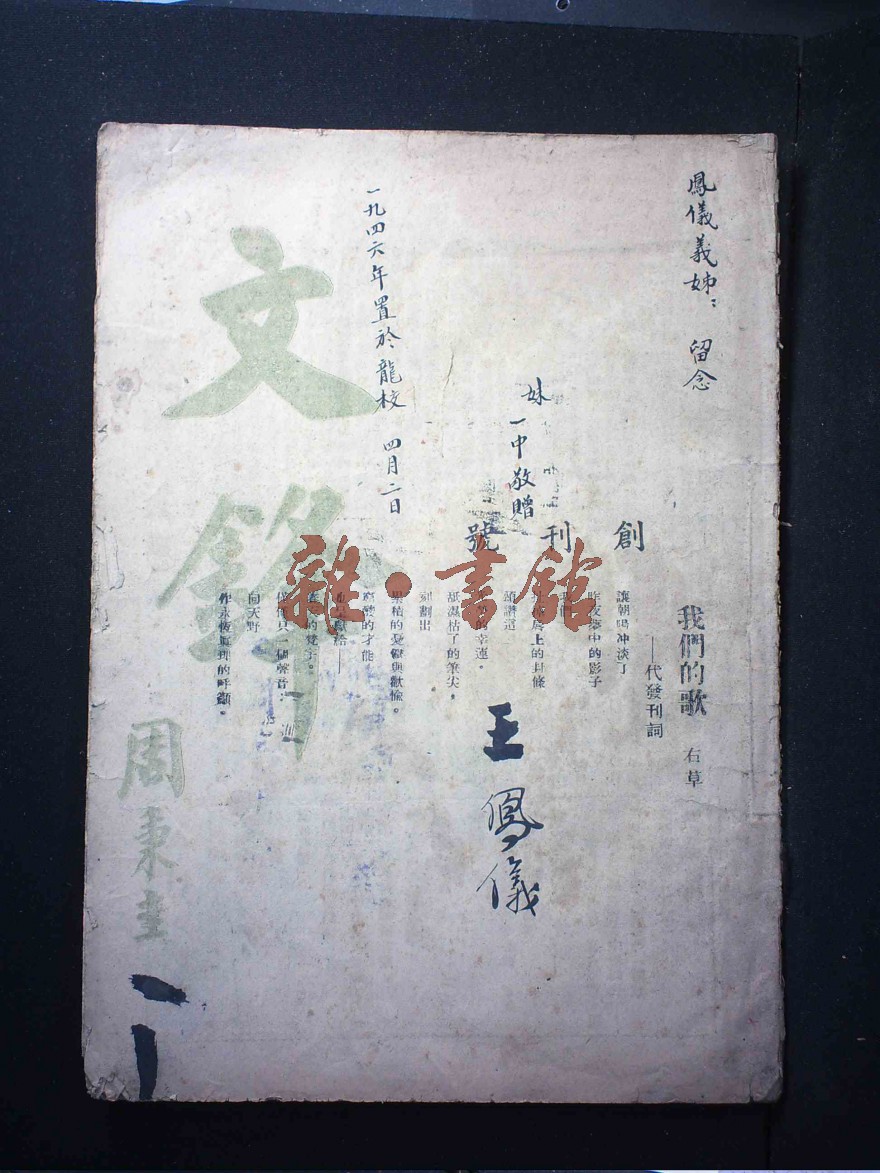 鳳儀義姊：留念
妹一中敬贈
一九四六年置於龍校 四月二日
文鋒
周秉圭
創刊號
我們的歌 右草
——代發刊詞
讓朝暘冲淡了
昨夜夢中的影子
我們
上的封條
頌讚這
的幸運。
舐濕枯了的筆尖，
刻劃出
累積的憂鬱與歡愉。
的才能
——
。
個聲音：
向天野
作永恆真理的呼籲。
王鳳儀
雜·書館